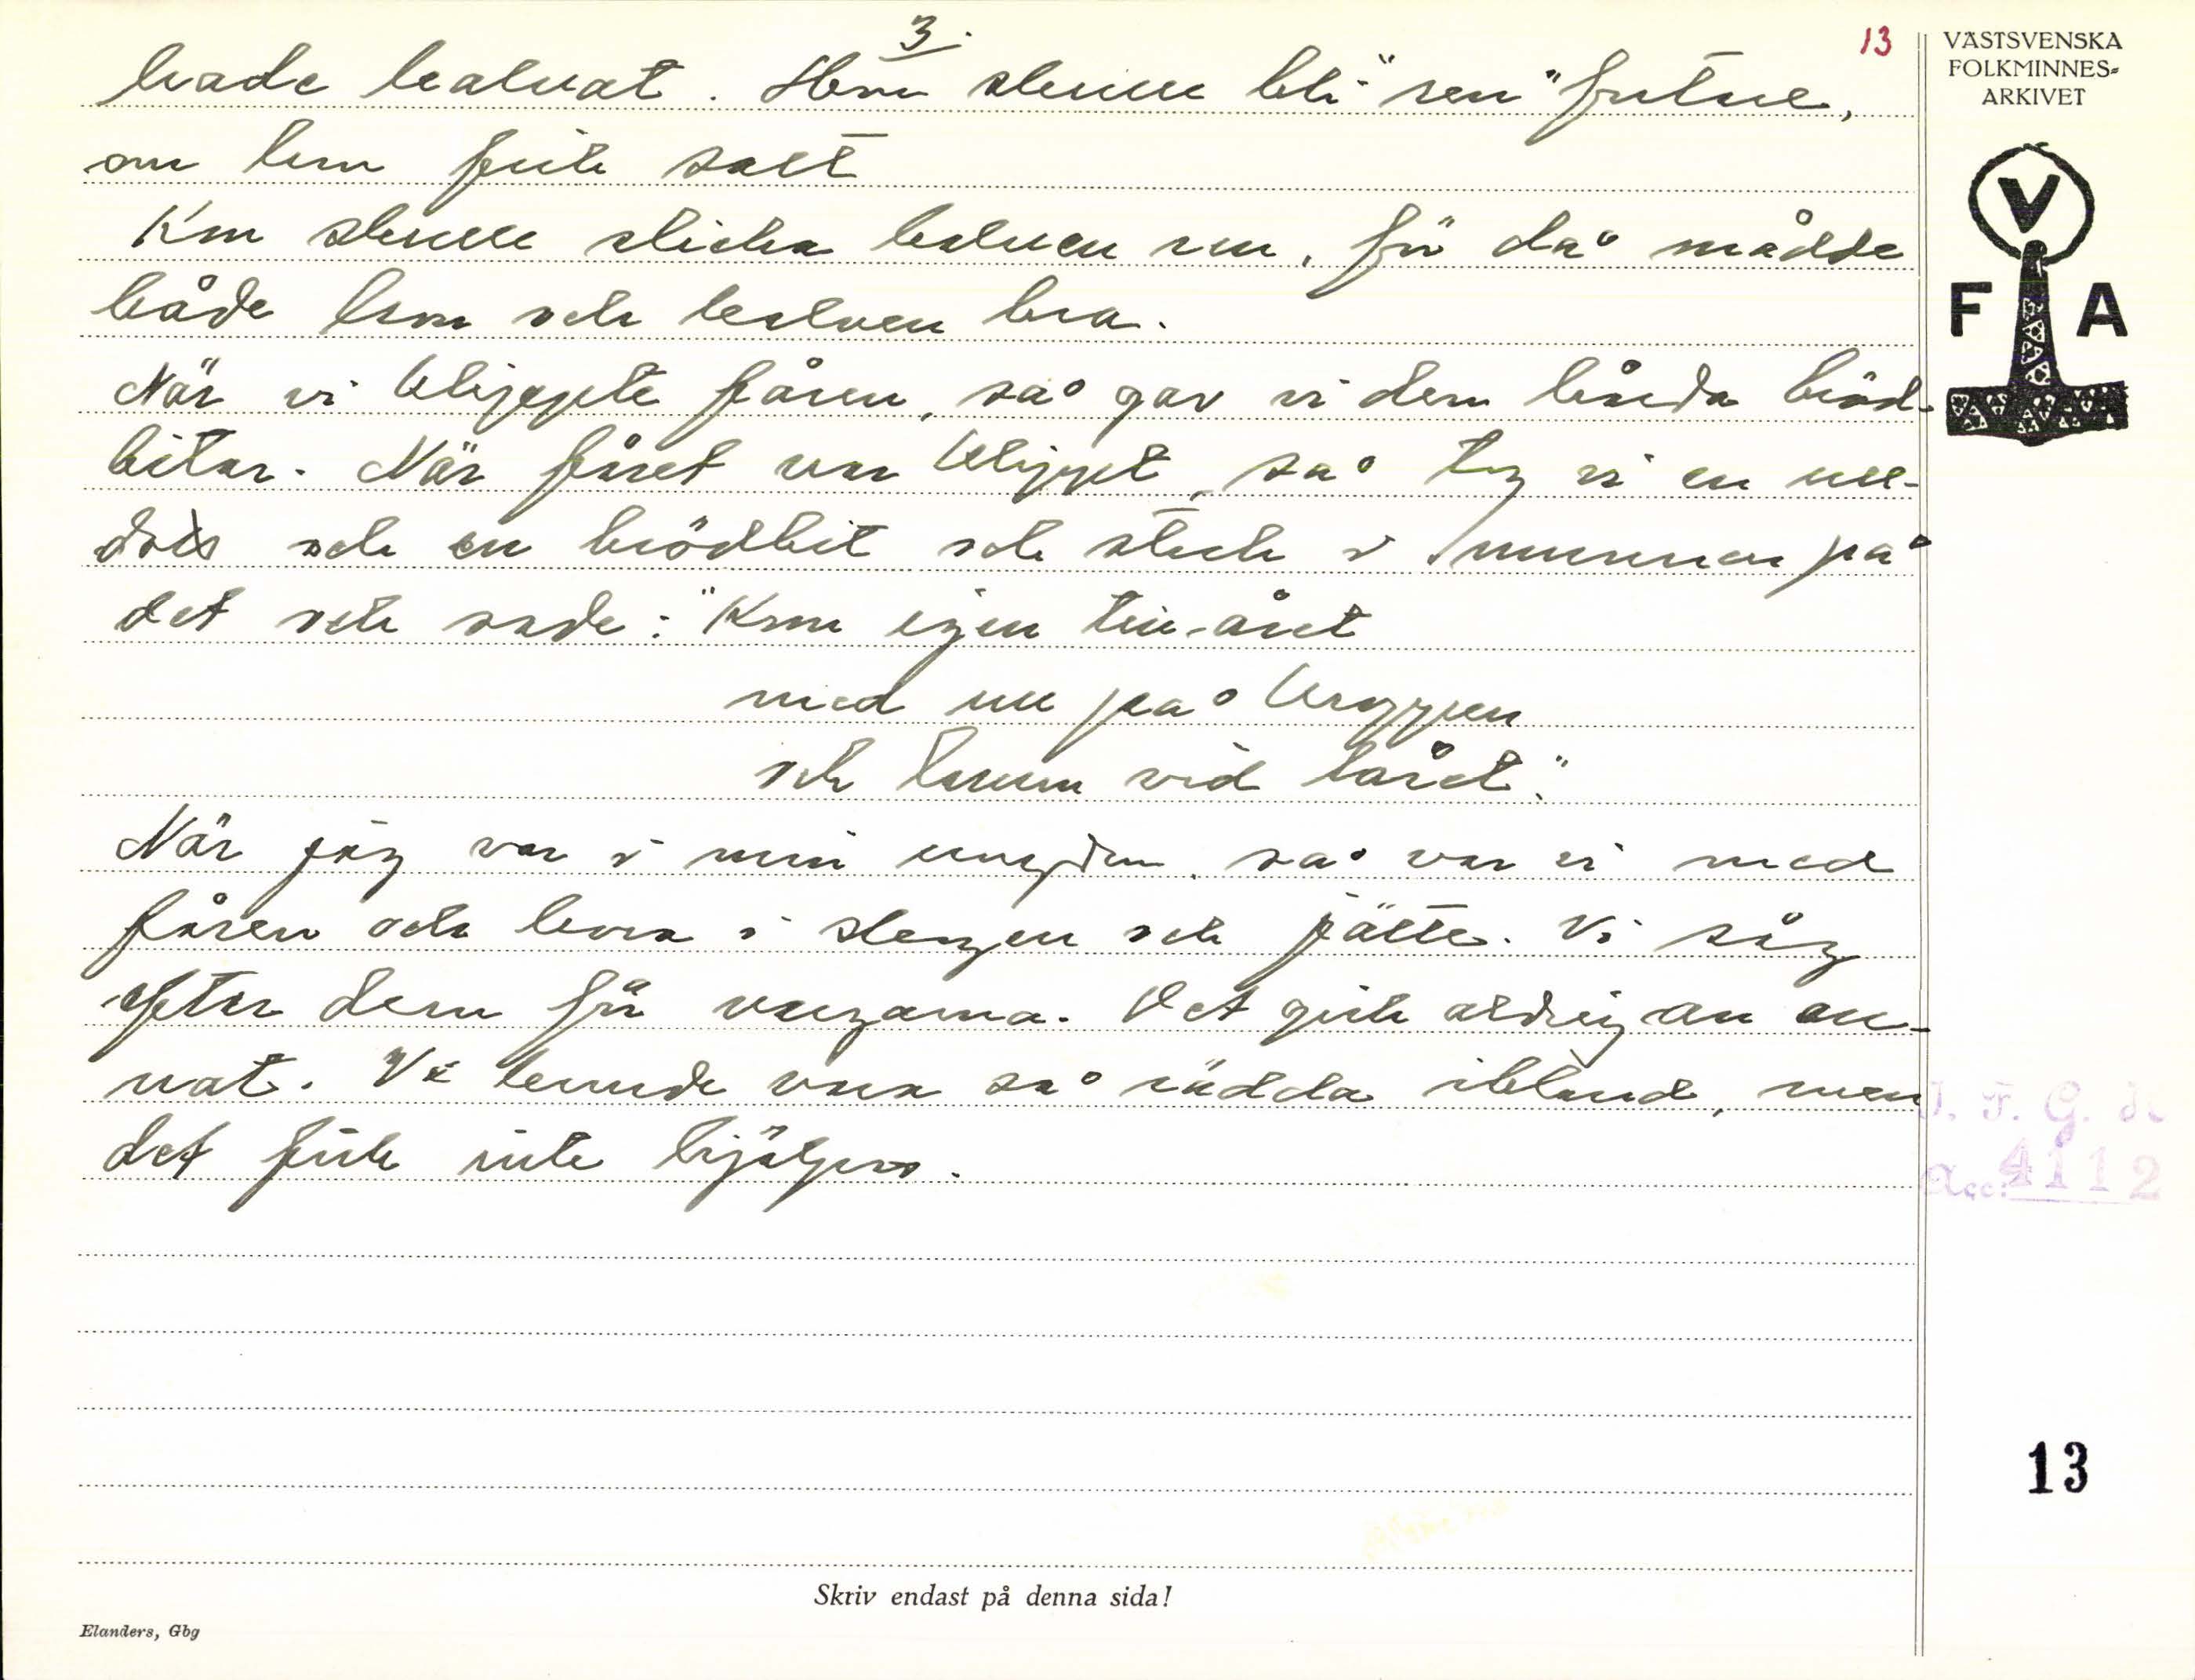 3.
13
hade kalvat. Hon skulle bli "ren" fortare,
om hon fick salt
Kon skulle slicka kalven ren, för då mådde
både kon och kalven bra.
När vi klippte fåren, så gav vi dem hårda bröd-
bitar. När fåret var klippt, så tog vi en ull-
dott och en brödbit och stack i munnen på
det och sade: "Kom igen till året
med ull på kroppen
och lamm vid låret."
När jag var i min ungdom, så var vi med
fåren och korna i skogen och jätte. Vi såg
efter dem för vargarna. Det gick aldrig an an-
nat. Vi kunde vara så rädda ibland, men
det fick inte hjälpas.
VÄSTSVENSKA
FOLKMINNES-
ARKIVET
V
F A
I. F. G. 
Acc: 4112
13
Skriv endast på denna sida!
Elanders, Gbg